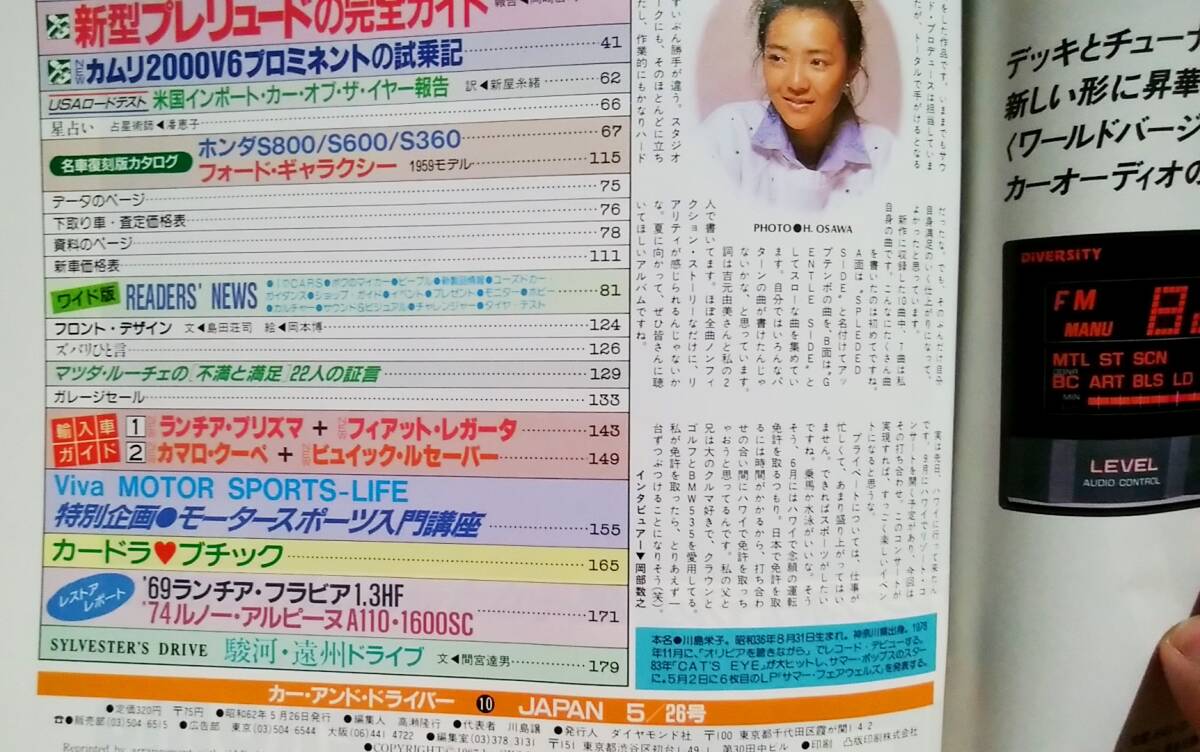 新型プレリュードの完全ガイド
カムリ2000V6プロミネントの試乗記 41
USAロードテスト 米国インポート・カー・オブ・ザ・イヤー報告 訳◀新屋糸緒 62
星占い 占星術師◀湯恵子 66
名車復刻版カタログ
ホンダS800/S600/S360 67
フォード・ギャラクシー 1959モデル 115
データのページ 75
下取り車・査定価格表 76
資料のページ 78
新車価格表 111
ワイド版 READERS' NEWS 81
フロント・デザイン 文◀島田荘司 絵◀岡本博 124
ズバリひと言 126
マツダ・ルーチェの「不満と満足」22人の証言 129
ガレージセール 133
輸入車ガイド
1 ランチア・プリズマ+フィアット・レガータ 143
2 カマロ・クーペ+ビュイック・ルセーバー 149
Viva MOTOR SPORTS-LIFE
特別企画●モータースポーツ入門講座 155
カードラ♥ブチック 165
レストアレポート
'69ランチア・フラビア1.3HF
'74ルノー・アルピーヌA110・1600SC 171
SYLVESTER'S DRIVE 駿河・遠州ドライブ 文◀間宮達男 179
カー・アンド・ドライバー 10 JAPAN 5/26号
●定価320円 〒75円 ●昭和62年5月26日発行 ●編集人 高瀬隆行 ●代表者 川島譲 ●発行人 ダイヤモンド社 〒100 東京都千代田区霞が関1 4 2
☎●販売部(03)504 6515 ●広告部 東京(03)504 6344 大阪(06)441 4722 ●編集室(03)378 3131 〒151 東京都渋谷区初台1 49 1 第30田中ビル ●印刷 凸版印刷株式会社
PHOTO●H. OSAWA
をした作品です。いままでもサウ
ずいぶん勝手が違う。スタジオ
ークにも、そのほとんどに立ち
だったな。でも、そのぶんだけ自分
自身満足のいく仕上がりになって、
よかったと思っています。
新作に収録した10曲中、7曲は私
自身の曲です。こんなにたくさん曲
を書いたのは初めてですね。
A面は〝SPLEDED
SIDE〟と名付けてアッ
プテンポの曲を、B面は〝G
ENTLE SIDE〟と
してスローな曲を集めてい
ます。自分ではいろんなパ
ターンの曲が書けたんじゃ
ないかな、と思っています。
詞は吉元由美さんと私の2
人で書いてます。ほぼ全曲ノンフィ
クション・ストーリーなだけに、リ
アリティが感じられるんじゃないか
な。夏に向かって、ぜひ皆さんに聴
いてほしいアルバムですね。
実は先日、ハワイに行って来たん
です。9月にハワイでリゾート・コ
ンサートを開く予定があり、今回は
その打ち合わせ。このコンサートが
実現すれば、すっごく楽しいイベン
トになると思うな。
プライベートについては、仕事が
忙しくて、あまり盛り上がってはい
ません。できればスポーツがしたい
ですね。乗馬か水泳がいいな。そう
そう、6月にはハワイで念願の運転
免許を取るつもり。日本で免許を取
るには時間がかかるから、打ち合わ
せの合い間にハワイで免許を取っち
ゃおうと思ってるんです。私の父と
兄は大のクルマ好きで、クラウンと
ゴルフとBMW535を愛用してる。
私が免許を取ったら、とりあえず一
台ずつぶつけることになりそう(笑)。
インタビュアー▼岡部数之
本名●川島栄子。昭和36年8月31日生まれ。神奈川県出身。1978
年11月に、「オリビアを聴きながら」でレコード・デビューする。
83年「CAT'S EYE」が大ヒットし、サマー・ポップスのスター
に。5月2日に6枚目のLP「サマー・フェアウェルズ」を発表する。
デッキとチューナ
新しい形に昇華
〈ワールドバージ
カーオーディオの
DiVERSiTY
FM
MANU
MTL ST SCN
BC ART BLS LD
MIN
LEVEL
AUDIO CONTROL